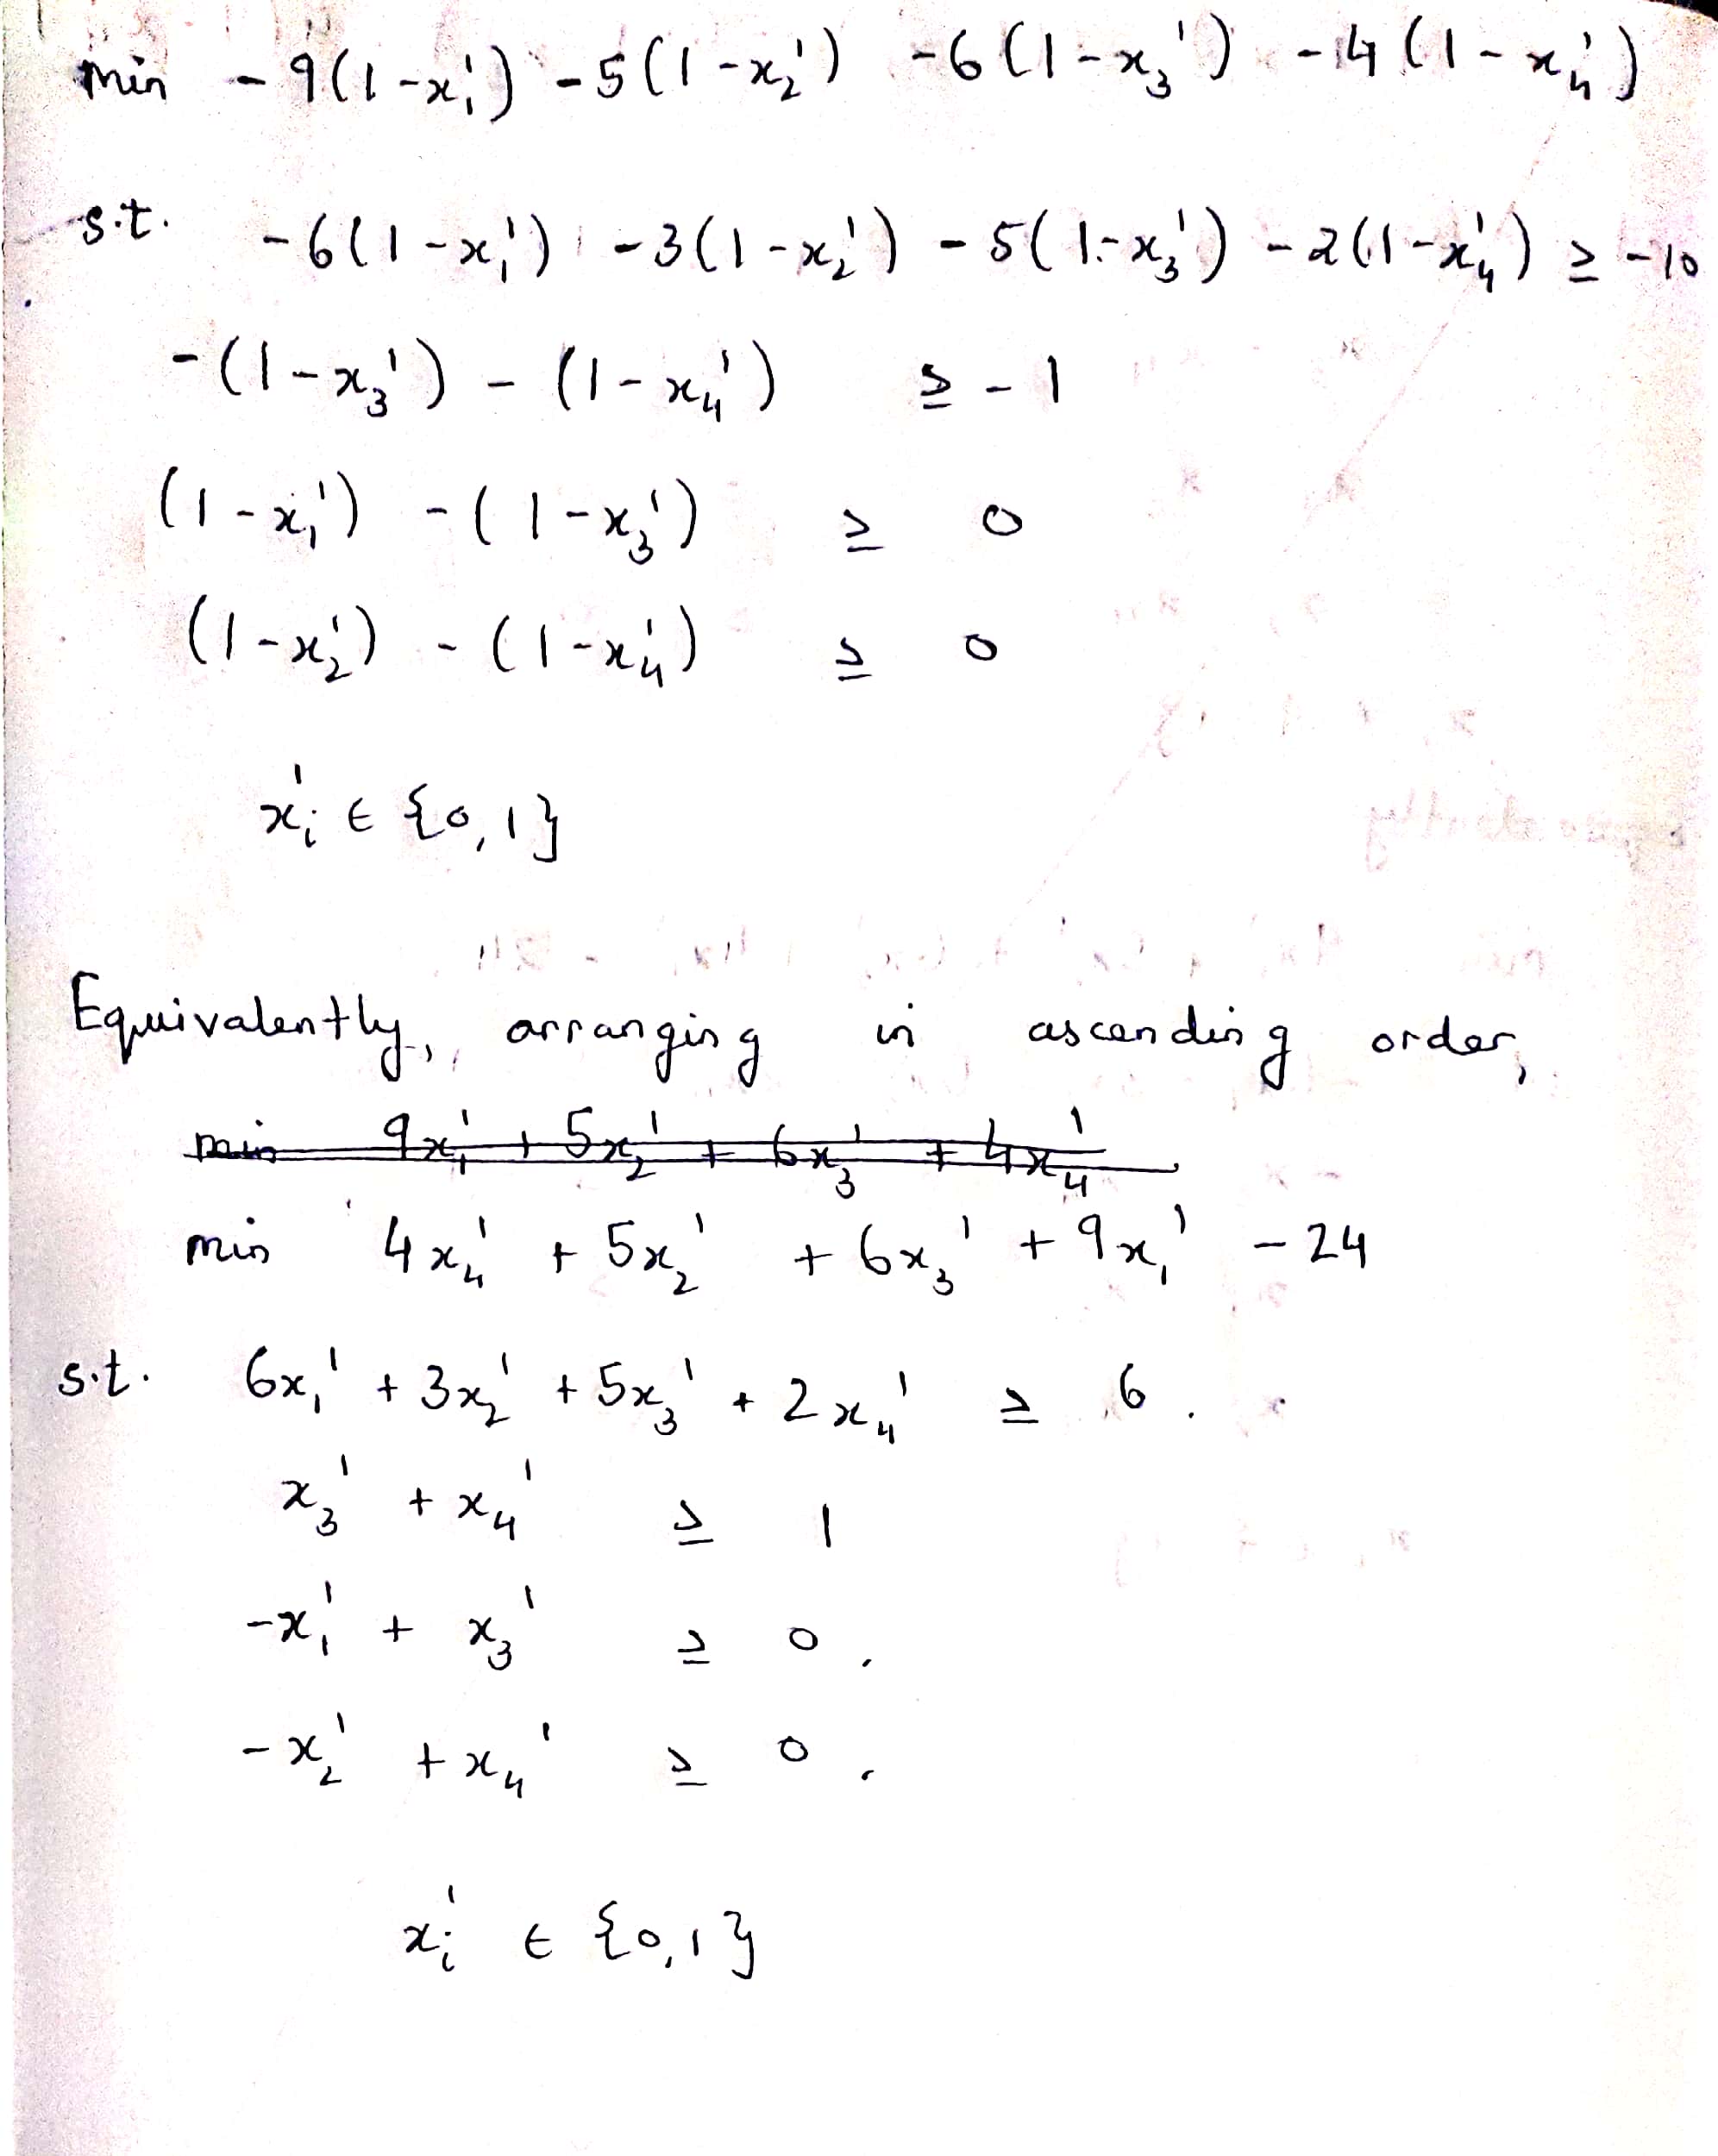 min - 9(1-x₁') - 5(1-x₂') - 6(1-x₃') - 4(1-x₄')
s.t. -6(1-x₁') - 3(1-x₂') - 5(1-x₃') - 2(1-x₄') ≥ -10
-(1-x₃') - (1-x₄') ≥ -1
(1-x₁') - (1-x₃') ≥ 0
(1-x₂') - (1-x₄') ≥ 0
xᵢ' ∈ {0,1}
Equivalently, arranging in ascending order,
min 9x₁' + 5x₂' + 6x₃' + 4x₄'
min 4x₄' + 5x₂' + 6x₃' + 9x₁' - 24
s.t. 6x₁' + 3x₂' + 5x₃' + 2x₄' ≥ 6.
x₃' + x₄' ≥ 1
-x₁' + x₃' ≥ 0.
-x₂' + x₄' ≥ 0.
xᵢ' ∈ {0,1}